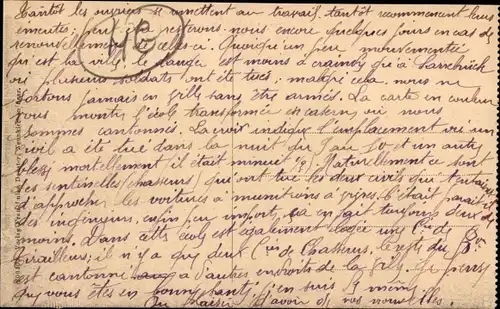 Tantôt les ouvriers se remettent au travail, tantôt recommencent leurs
émeutes; nous resterons nous encore quelques jours en cas de
renouvellement de celles-ci. Quoiqu'un peu mouvementée
qu'est la ville, le danger est moins à craindre qu'à Sarrebrück
où plusieurs soldats ont été tués; malgré cela nous ne
sortons jamais en ville sans être armés. La carte en couleur
vous montre l'école transformée en caserne où nous
sommes cantonnés. La croix indique l'emplacement où un
civil a été tué dans la nuit du et un autre
blessé mortellement il était minuit. Naturellement ce sont
des sentinelles, chasseurs, qui ont tué les deux civils qui tentaient
d'approcher les voitures à munitions à gires. C'était paraît-il
des ingénieurs, enfin peu importe, ça en fait toujours deux de
moins. Dans cette école est également logée une Cie de
Tirailleurs; il n'y a que deux Cies de Chasseurs, le reste du Bon
est cantonné à d'autres endroits de la ville. Je pense
que vous êtes en bonne santé, j'en suis de même.
Au plaisir d'avoir de vos nouvelles.